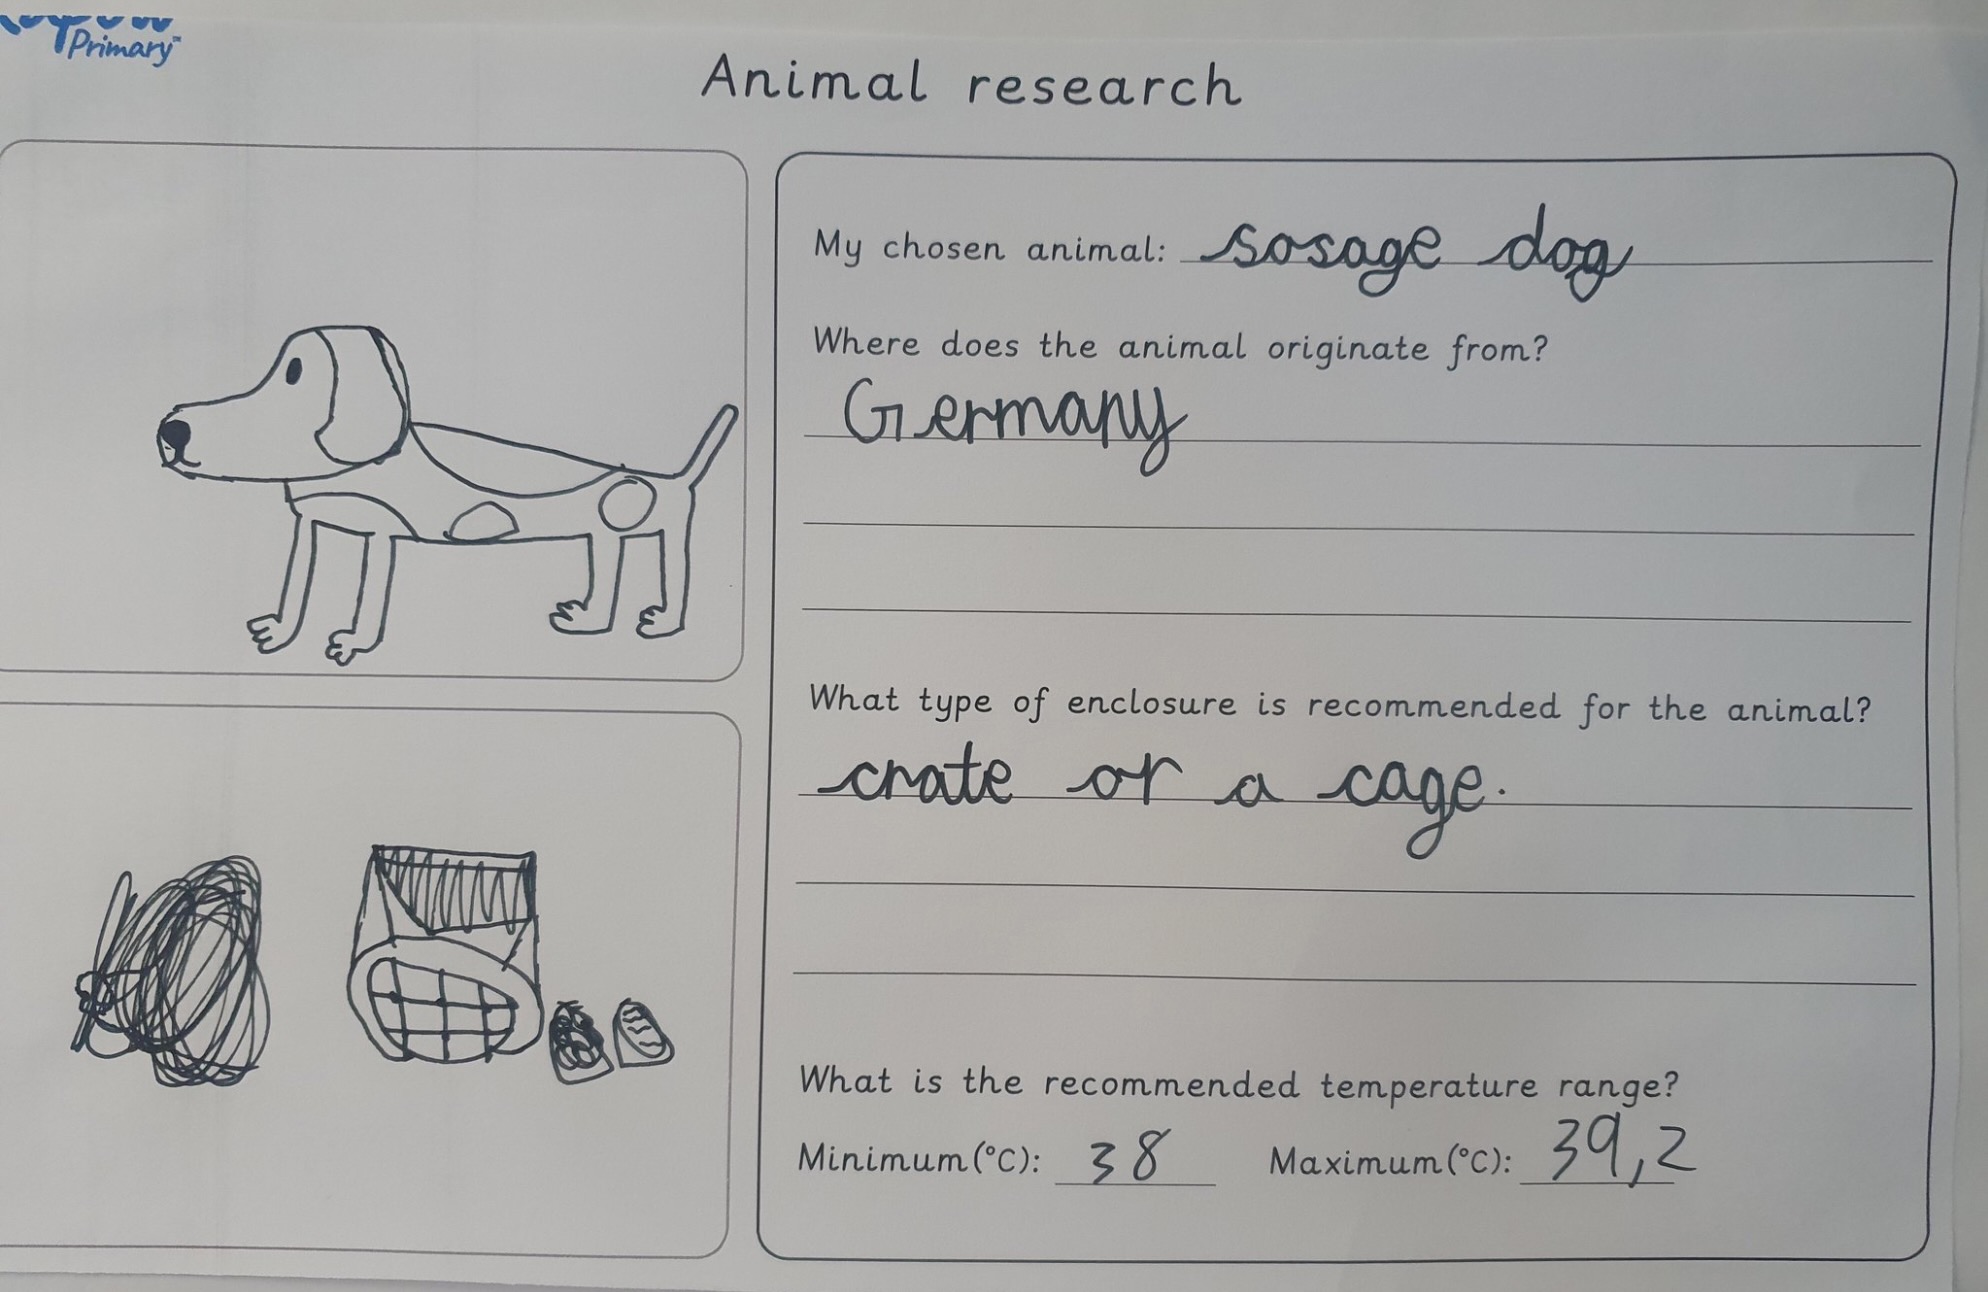 Primary
Animal research
My chosen animal: sosage dog
Where does the animal originate from?
Germany
What type of enclosure is recommended for the animal?
crate or a cage.
What is the recommended temperature range?
Minimum(°C): 38 Maximum(°C): 39,2